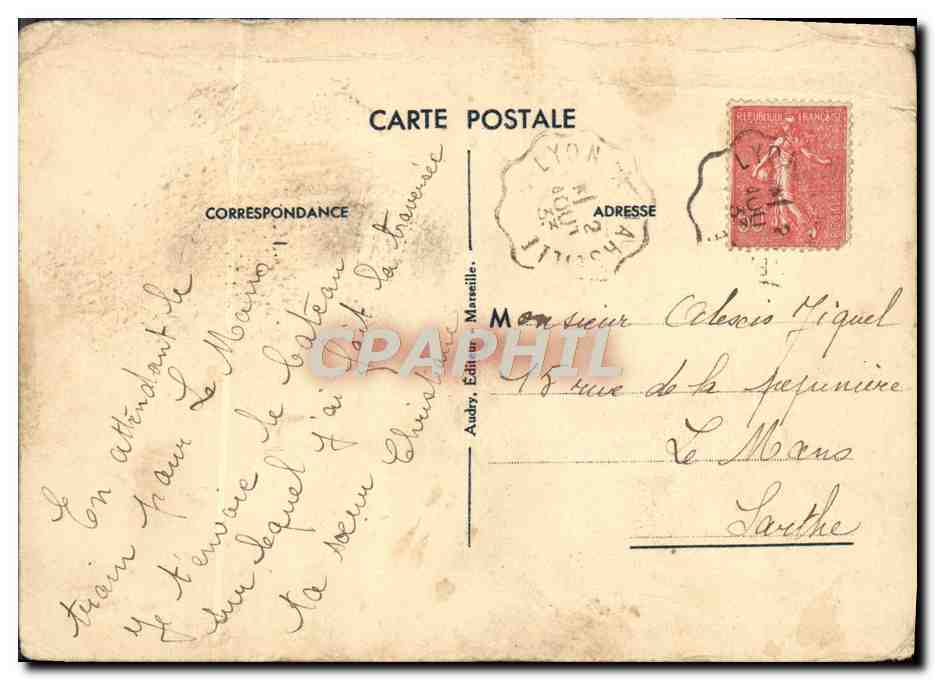 CARTE POSTALE
CORRESPONDANCE
ADRESSE
REPUBLIQUE FRANÇAISE
LYON
AOUT
LYON
AOUT
En attendant le
train pour Le Mans
Je t'envoie le bateau
sur lequel j'ai fait la traversée
ta soeur Christiane
Audry, Éditeur - Marseille.
Monsieur Alexis
15 rue de la pepinière
Le Mans
Sarthe
CPAPHIL